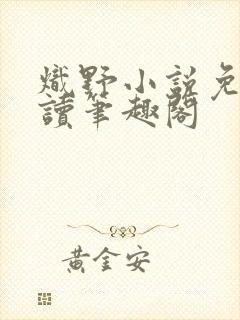 熾野小説免
讀筆趣閣
黃金安